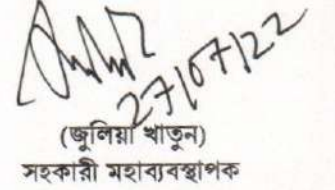 27/07/22
(জুলিয়া খাতুন)
সহকারী মহাব্যবস্থাপক